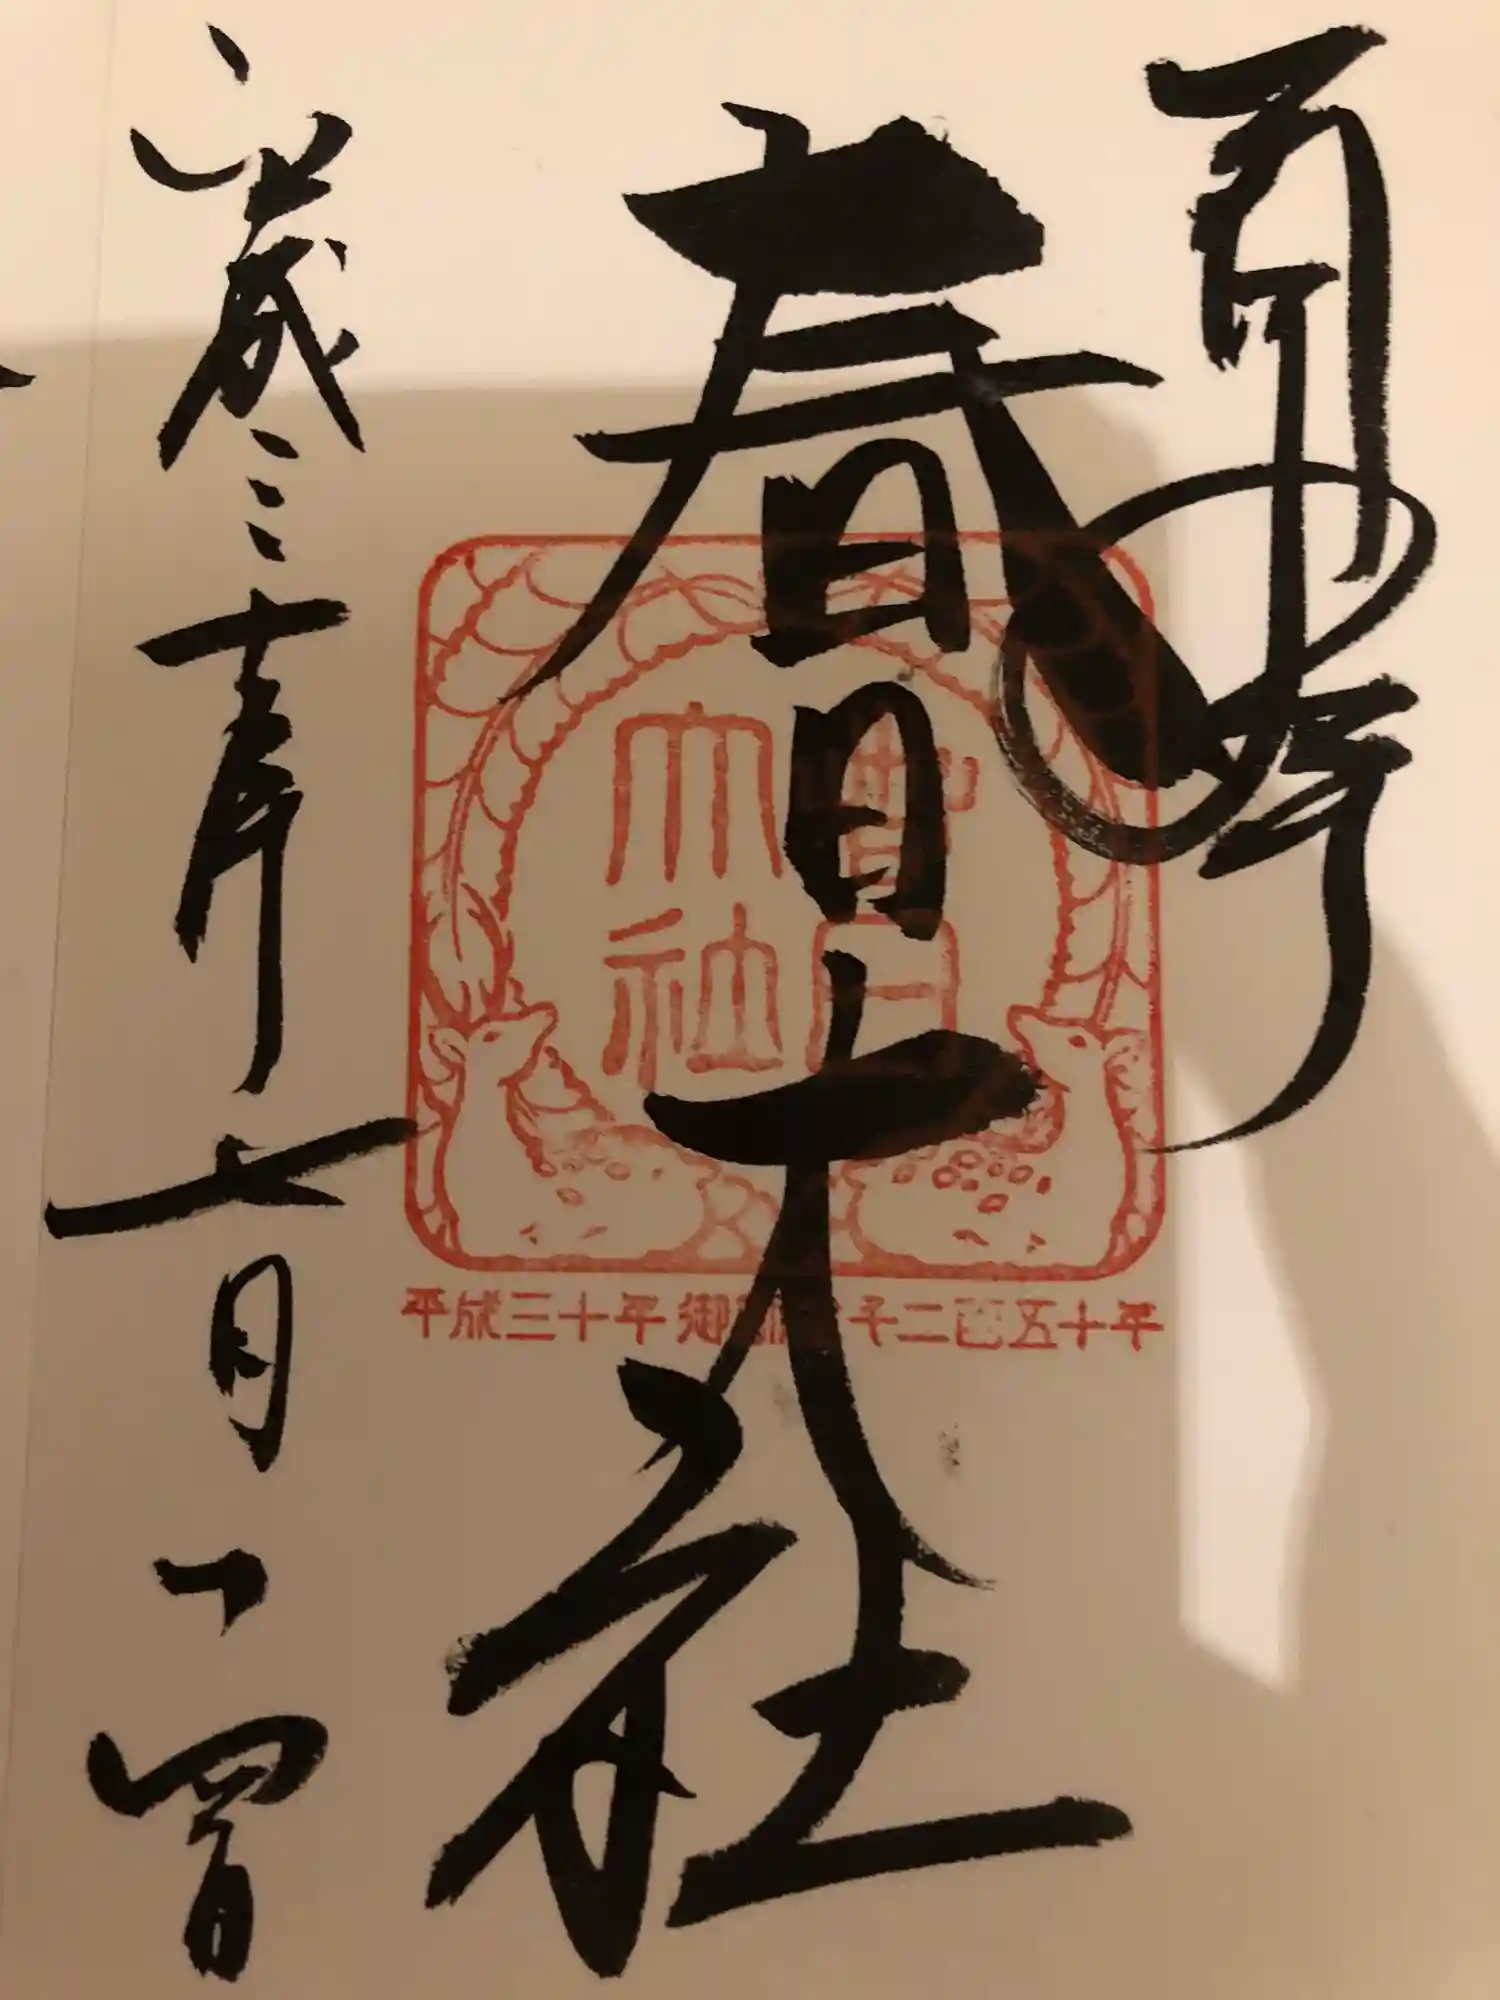 春日大社
平成三十年七月一四日
春日
大社
平成三十年 御創建千二百五十年